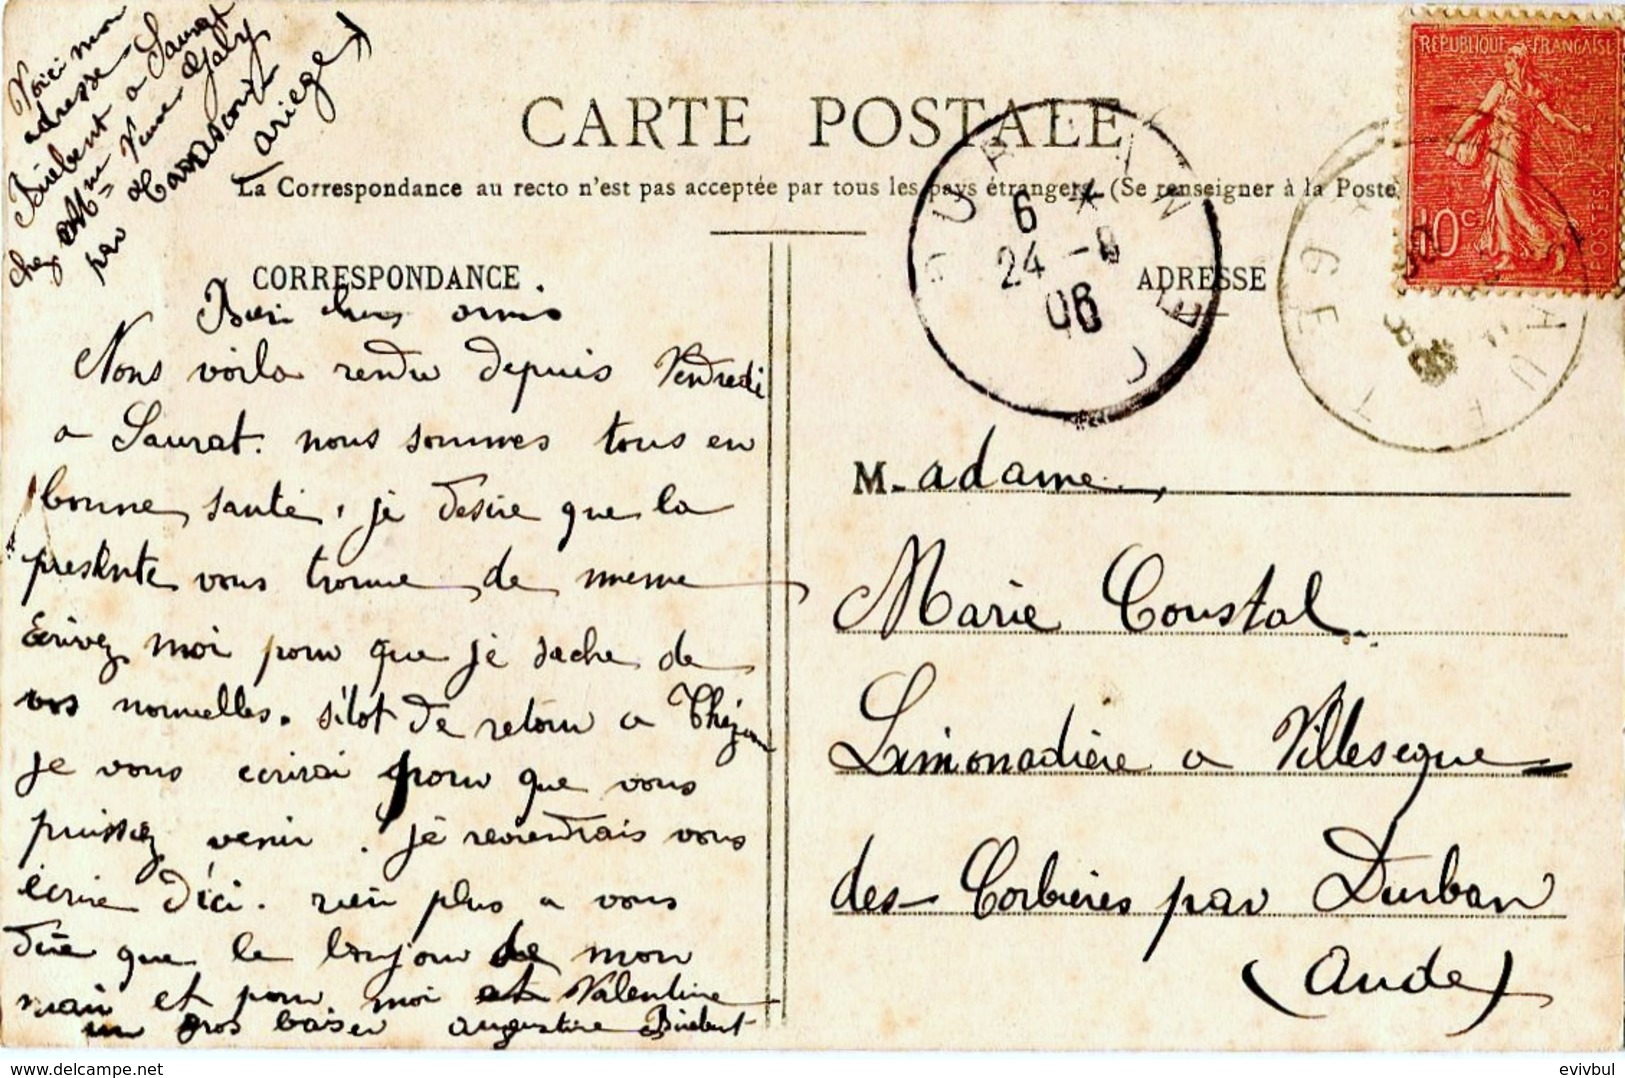 Voici mon
adresse
Birebent a Saurat
chez Mme Veuve Galy
par Tarascon
ariege)
CARTE POSTALE
La Correspondance au recto n'est pas acceptée par tous les pays étrangers (Se renseigner à la Poste)
CORRESPONDANCE
ADRESSE
REPUBLIQUE FRANÇAISE
10c
POSTES
6
24 - 8
06
Bien chers amis
Nous voila rendu depuis Vendredi
a Saurat. nous sommes tous en
bonne santé, je desire que la
presente vous trouve de meme
Ecrivez moi pour que je sache de
vos nouvelles. sitot de retour a Thézan
je vous ecrirai pour que vous
puissiez venir. je reviendrais vous
écrire d'ici. rien plus a vous
dire que le bonjour de mon
mari et pour moi et Valentine
un gros baiser augustine Birebent
M. adame,
Marie Coustal
Limonadière a Villeseque
des-Corbieres par Durban
(Aude)
delcampe.net
evivbul